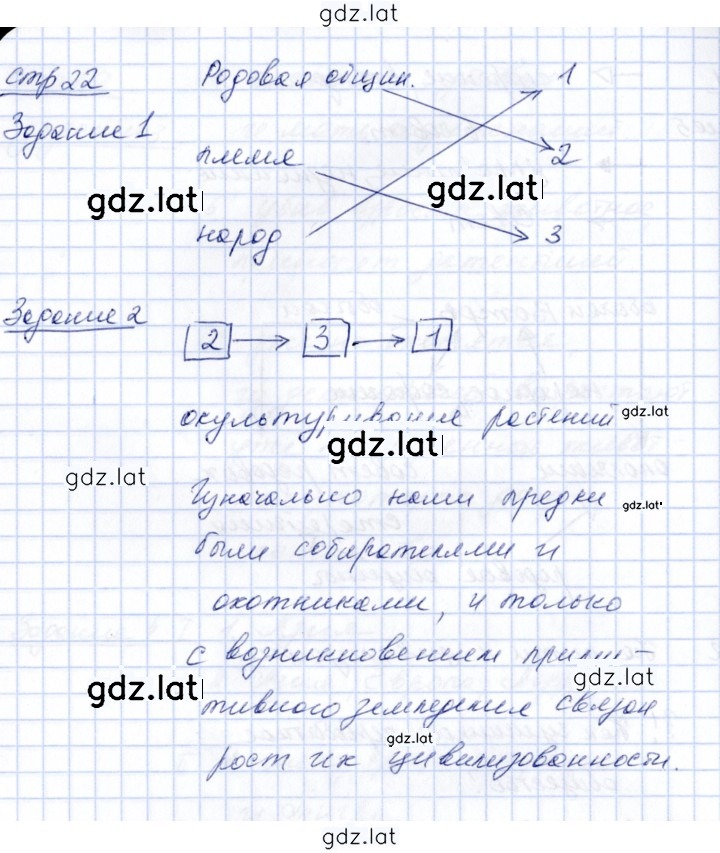 gdz.lat
стр 22
Родовая общин. 1
Задание 1
племя 2
gdz.lat
gdz.lat
народ 3
Задание 2
2 → 3 → 1
окультуривание растений
gdz.lat
gdz.lat
gdz.lat
Изначально наши предки
gdz.lat
были собирателями и
охотниками, и только
с возникновением прими-
gdz.lat
gdz.lat
тивного земледелия связан
gdz.lat
рост их цивилизованности.
gdz.lat